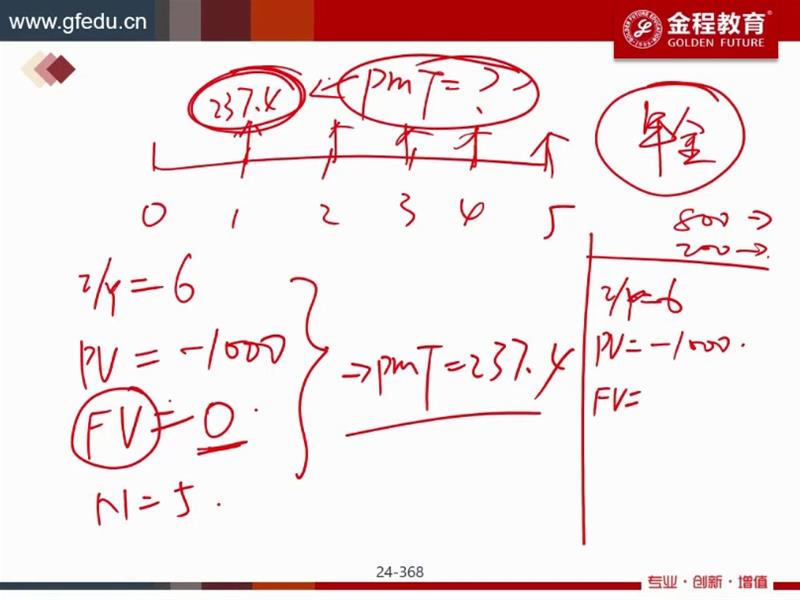 www.gfedu.cn
金程教育
GOLDEN FUTURE
237.4 ← PMT = ?
年金
0 1 2 3 4 5
800 →
200 →
I/Y = 6
PV = -1000
FV = 0
N = 5
→ PMT = 237.4
I/Y = 6
PV = -1000
FV =
24-368
专业·创新·增值